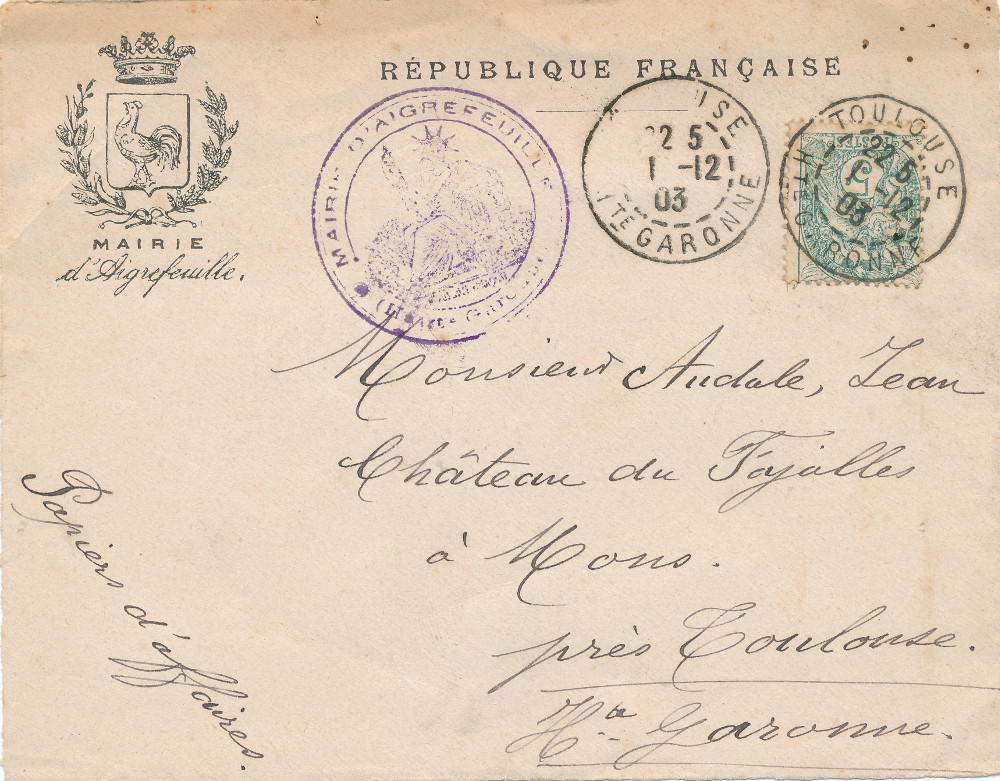 RÉPUBLIQUE FRANÇAISE
MAIRIE
d'Aigrefeuille.
MAIRIE D'AIGREFEUILLE
(Haute Garonne)
USE
22 5
1 -12
03
HTE GARONNE
TOULOUSE
22 5
1 -12
03
HTE GARONNE
POSTES
5
Monsieur Audale, Jean
Château du Fajolles
à Mons.
près Toulouse.
Hte Garonne.
Papiers d'affaires.